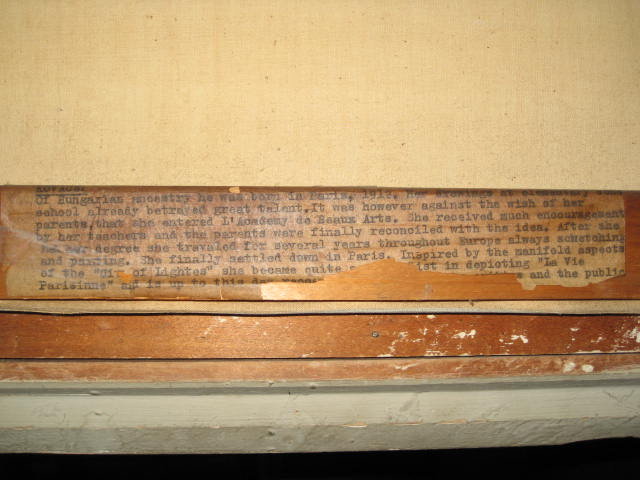 Of Hungarian ancestry he was born in Paris, 1912. Her drawings at elementary
school already betrayed great talent.It was however against the wish of her
parents that she entered L'Academy de Beaux Arts. She received much encouragement
by her teachers and tha parents were finally reconciled with the idea. After she
her degree she traveled for several years throughout Europe always schetching
and painting. She finally settled down in Paris. Inspired by the manifold aspects
of the "City of Lightes" she became quite ist in depicting "La Vie
Parisinne" and is up to this day and the public